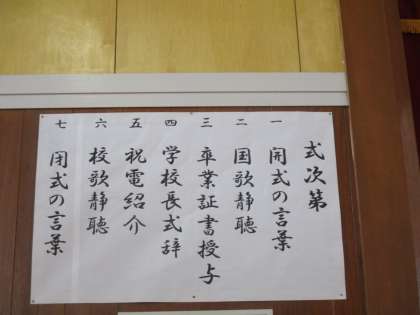 式次第
一 開式の言葉
二 国歌静聴
三 卒業証書授与
四 学校長式辞
五 祝電紹介
六 校歌静聴
七 閉式の言葉